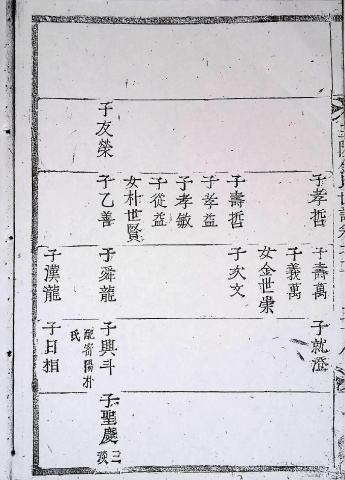 子孝哲
子壽哲
子孝益
子孝敏
子從益
女朴世賢
子乙善
子友榮
子壽萬
子義萬
女金世崇
子次文
子舜龍
子漢龍
子就澄
子興斗
配密陽朴氏
子日相
子聖慶